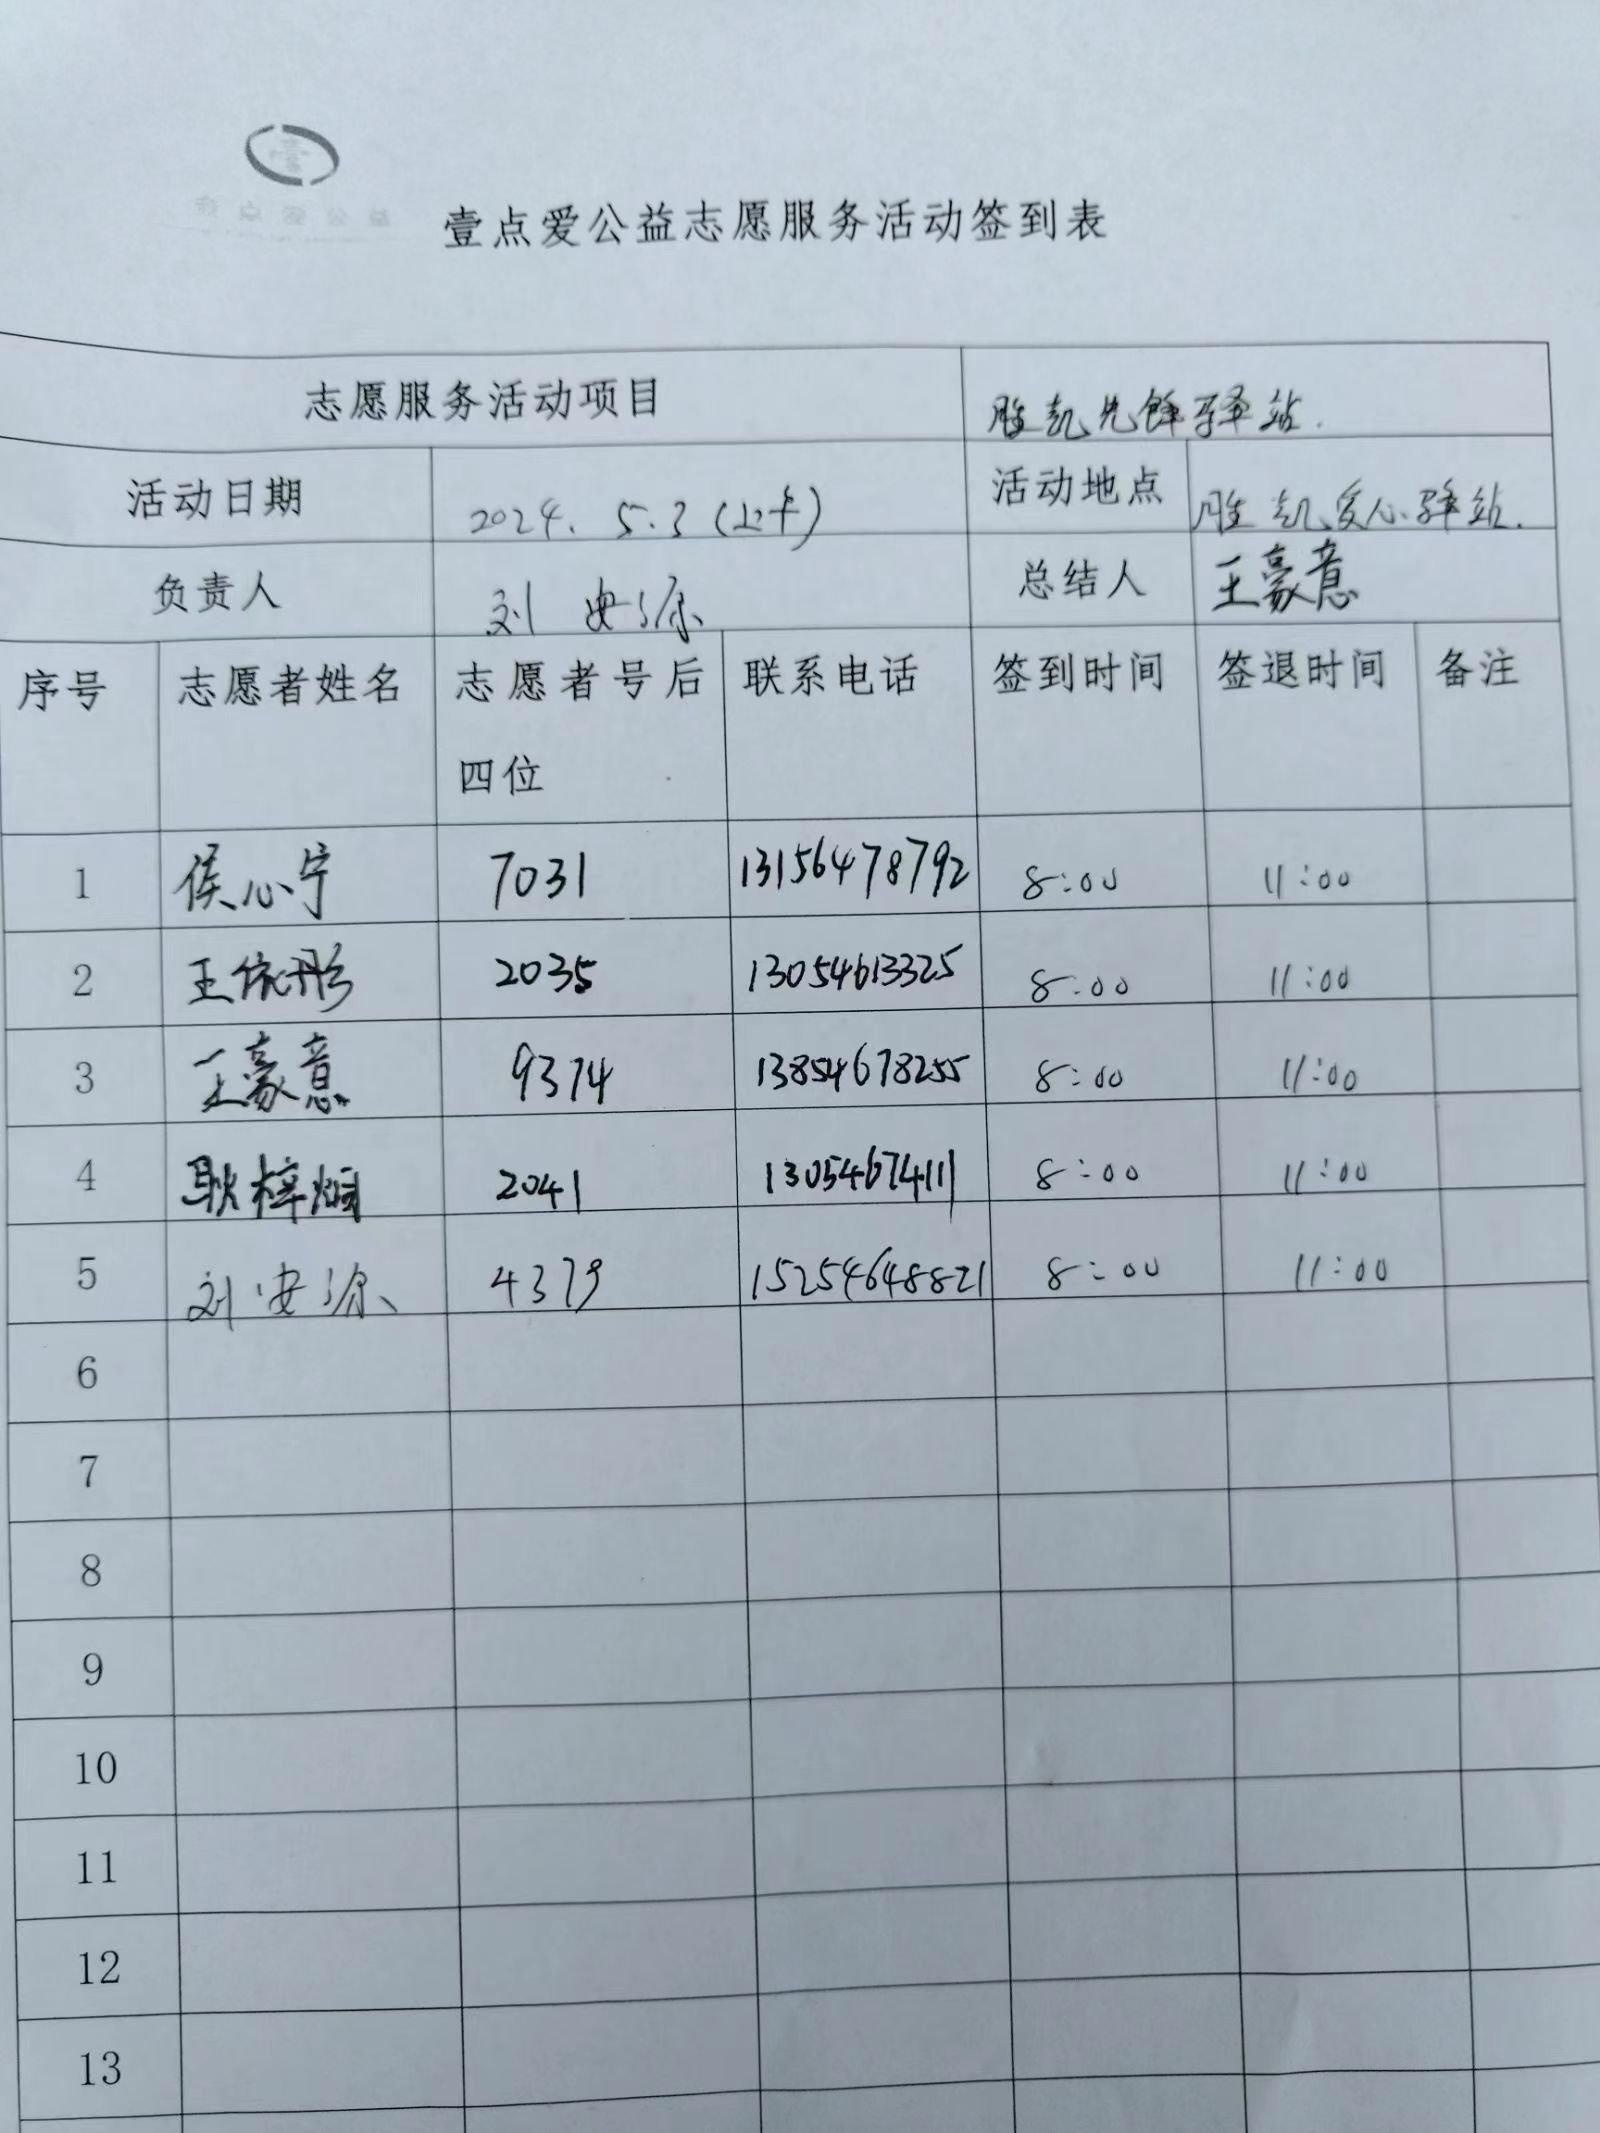 壹点爱公益志愿服务活动签到表
志愿服务活动项目 胜凯先锋驿站.
活动日期 2024. 5.3(上午) 活动地点 胜凯爱心驿站.
负责人 刘安源 总结人 王豪意
序号 志愿者姓名 志愿者号后 联系电话 签到时间 签退时间 备注
四位
1 侯心宁 7031 13156478792 8:00 11:00
2 王依彤 2035 13054613325 8:00 11:00
3 王豪意 9374 13854678255 8:00 11:00
4 耿梓烜 2041 1305467411 8:00 11:00
5 刘安源 4379 15254648821 8:00 11:00
6
7
8
9
10
11
12
13